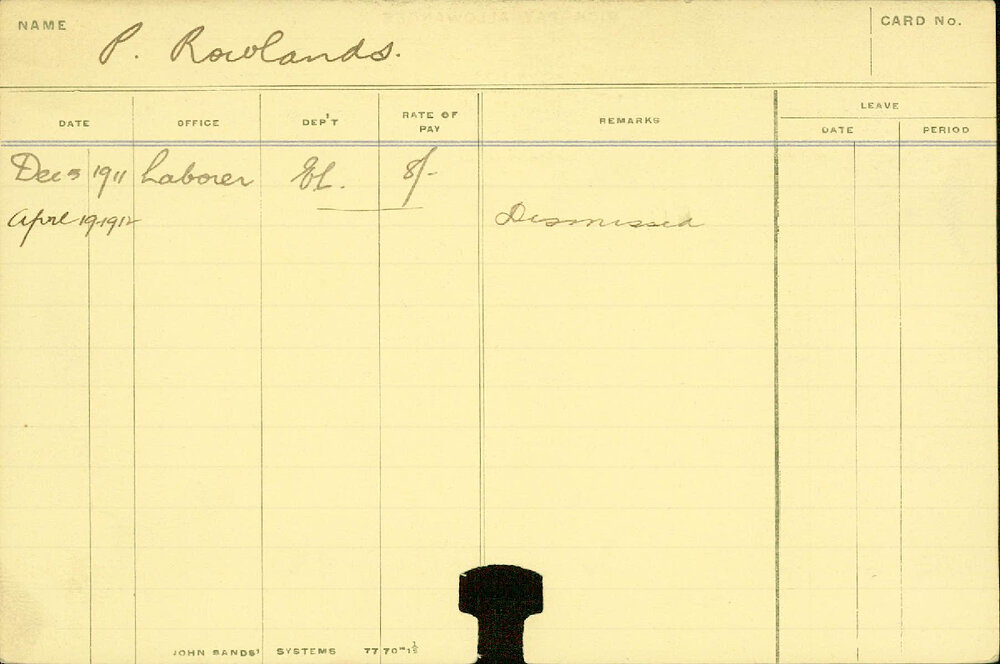 NAME P. Rowlands. CARD No.
DATE OFFICE DEP'T RATE OF PAY REMARKS LEAVE
DATE PERIOD
Dec 5 1911 Laborer El. 8/-
April 19 1912 Dismissed
JOHN SANDS' SYSTEMS